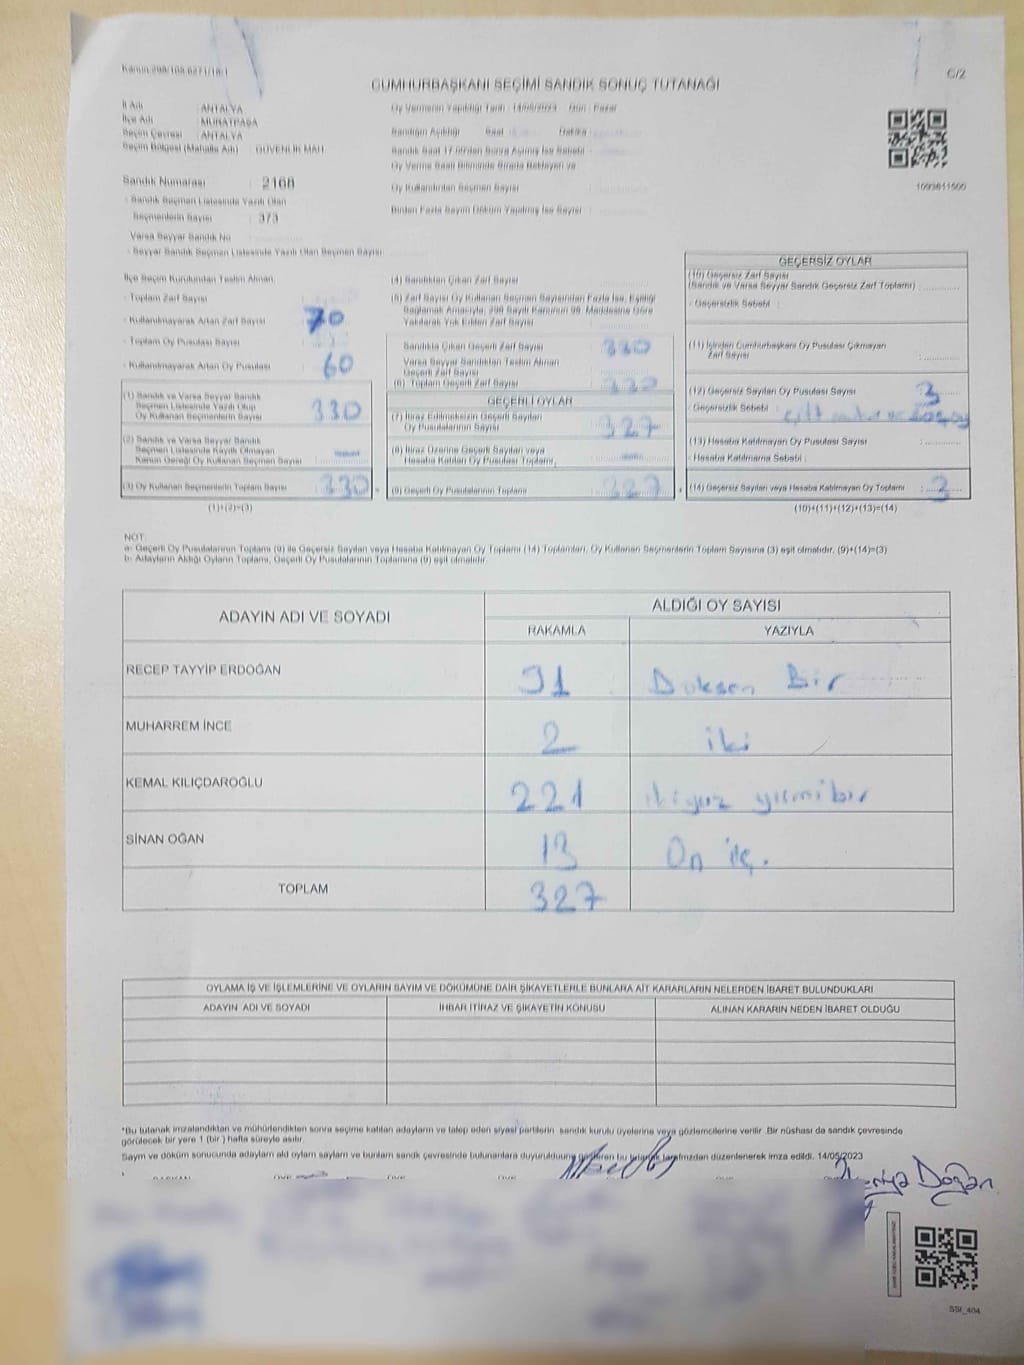 Kanun:298/105,6271/18:1
C/2
CUMHURBAŞKANI SEÇİMİ SANDIK SONUÇ TUTANAĞI
İl Adı : ANTALYA
İlçe Adı : MURATPAŞA
Seçim Çevresi : ANTALYA
Seçim Bölgesi (Mahalle Adı) : GÜVENLİK MAH.
Sandık Numarası : 2168
- Sandık Seçmen Listesinde Yazılı Olan
Seçmenlerin Sayısı : 373
Varsa Seyyar Sandık No
- Seyyar Sandık Seçmen Listesinde Yazılı Olan Seçmen Sayısı
Oy Vermenin Yapıldığı Tarih : 14/05/2023 Gün : Pazar
Sandığın Açıldığı Saat Dakika
Sandık Saat 17.00'den Sonra Açılmış İse Sebebi
Oy Verme Saati Bitiminde Sırada Bekleyen ve
Oy Kullandırılan Seçmen Sayısı
Birden Fazla Sayım Döküm Yapılmış İse Sayısı
1093811500
İlçe Seçim Kurulundan Teslim Alınan;
- Toplam Zarf Sayısı
- Kullanılmayarak Artan Zarf Sayısı 70
- Toplam Oy Pusulası Sayısı
- Kullanılmayarak Artan Oy Pusulası 60
(1) Sandık ve Varsa Seyyar Sandık
Seçmen Listesinde Yazılı Olup
Oy Kullanan Seçmenlerin Sayısı 330
(2) Sandık ve Varsa Seyyar Sandık
Seçmen Listesinde Kayıtlı Olmayan
Kanun Gereği Oy Kullanan Seçmen Sayısı
(3) Oy Kullanan Seçmenlerin Toplam Sayısı 330
(1)+(2)=(3)
(4) Sandıktan Çıkan Zarf Sayısı
(5) Zarf Sayısı Oy Kullanan Seçmen Sayısından Fazla İse, Eşitliği
Sağlamak Amacıyla; 298 Sayılı Kanunun 98. Maddesine Göre
Yakılarak Yok Edilen Zarf Sayısı
Sandıkta Çıkan Geçerli Zarf Sayısı 330
Varsa Seyyar Sandıktan Teslim Alınan
Geçerli Zarf Sayısı
(6) Toplam Geçerli Zarf Sayısı 330
GEÇERLİ OYLAR
(7) İtiraz Edilmeksizin Geçerli Sayılan
Oy Pusulalarının Sayısı 327
(8) İtiraz Üzerine Geçerli Sayılan veya
Hesaba Katılan Oy Pusulası Toplamı,
(9) Geçerli Oy Pusulalarının Toplamı 327
GEÇERSİZ OYLAR
(10) Geçersiz Zarf Sayısı
(Sandık ve Varsa Seyyar Sandık Geçersiz Zarf Toplamı) :
- Geçersizlik Sebebi :
(11) İçinden Cumhurbaşkanı Oy Pusulası Çıkmayan
Zarf Sayısı :
(12) Geçersiz Sayılan Oy Pusulası Sayısı : 3
- Geçersizlik Sebebi :
(13) Hesaba Katılmayan Oy Pusulası Sayısı :
- Hesaba Katılmama Sebebi :
(14) Geçersiz Sayılan veya Hesaba Katılmayan Oy Toplamı : 3
(10)+(11)+(12)+(13)=(14)
NOT:
a- Geçerli Oy Pusulalarının Toplamı (9) ile Geçersiz Sayılan veya Hesaba Katılmayan Oy Toplamı (14) Toplamları, Oy Kullanan Seçmenlerin Toplam Sayısına (3) eşit olmalıdır. (9)+(14)=(3)
b- Adayların Aldığı Oyların Toplamı, Geçerli Oy Pusulalarının Toplamına (9) eşit olmalıdır.
ADAYIN ADI VE SOYADI ALDIĞI OY SAYISI
RAKAMLA YAZIYLA
RECEP TAYYİP ERDOĞAN 91 Doksan Bir
MUHARREM İNCE 2 iki
KEMAL KILIÇDAROĞLU 221 ikiyüz yirmibir
SİNAN OĞAN 13 On üç.
TOPLAM 327
OYLAMA İŞ VE İŞLEMLERİNE VE OYLARIN SAYIM VE DÖKÜMÜNE DAİR ŞİKAYETLERLE BUNLARA AİT KARARLARIN NELERDEN İBARET BULUNDUKLARI
ADAYIN ADI VE SOYADI İHBAR İTİRAZ VE ŞİKAYETİN KONUSU ALINAN KARARIN NEDEN İBARET OLDUĞU
*Bu tutanak imzalandıktan ve mühürlendikten sonra seçime katılan adayların ve talep eden siyasi partilerin sandık kurulu üyelerine veya gözlemcilerine verilir. Bir nüshası da sandık çevresinde
görülecek bir yere 1 (bir ) hafta süreyle asılır.
Sayım ve döküm sonucunda adayların aldığı oyların sayılarını ve bunların sandık çevresinde bulunanlara duyurulduğunu gösteren bu tutanak tarafımızdan düzenlenerek imza edildi. 14/05/2023
Doğan
SSI_404